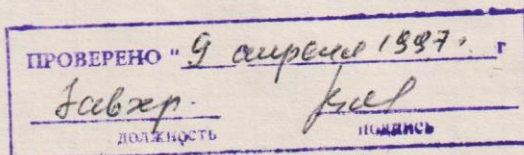 ПРОВЕРЕНО " 9 апреля 1997. г
Завхр.
должность подпись